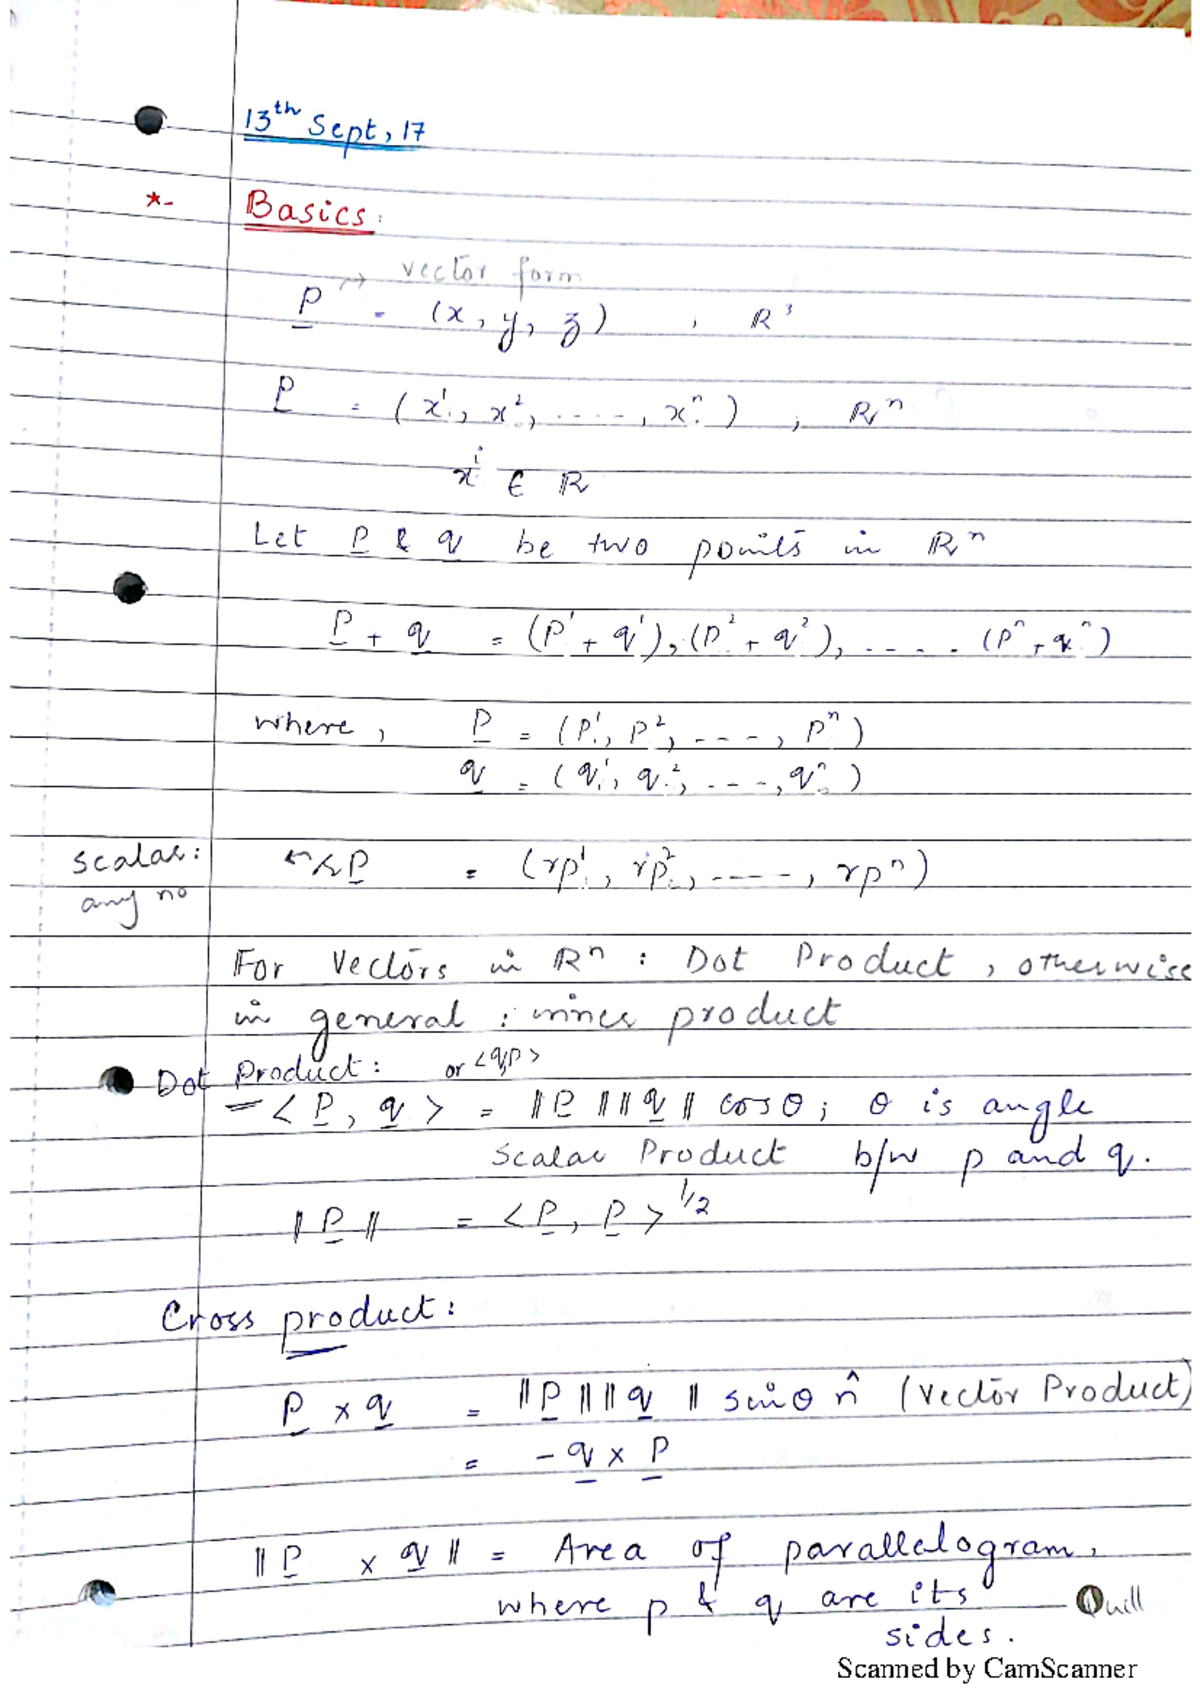 13th Sept, 17
*- Basics:
→ vector form
p = (x, y, z) , ℝ³
p = (x¹, x², ....., xⁿ) , ℝⁿ
xⁱ ∈ ℝ
Let p & q be two points in ℝⁿ
p + q = (p¹ + q¹), (p² + q²), ..... (pⁿ + qⁿ)
where, p = (p¹, p², ----, pⁿ)
q = (q¹, q², ----, qⁿ)
Scalar: p = (rp¹, rp², -----, rpⁿ)
any no
For Vectors in ℝⁿ : Dot Product, otherwise
in general : inner product
Dot Product: or <q,p>
= <p, q> = ‖p‖‖q‖ cosθ; θ is angle
Scalar Product b/w p and q.
‖p‖ = <p, p>^1/2
Cross product:
p × q = ‖p‖‖q‖ sinθ n̂ (Vector Product)
= - q × p
‖p × q‖ = Area of parallelogram,
where p & q are its
sides.
Quill
Scanned by CamScanner